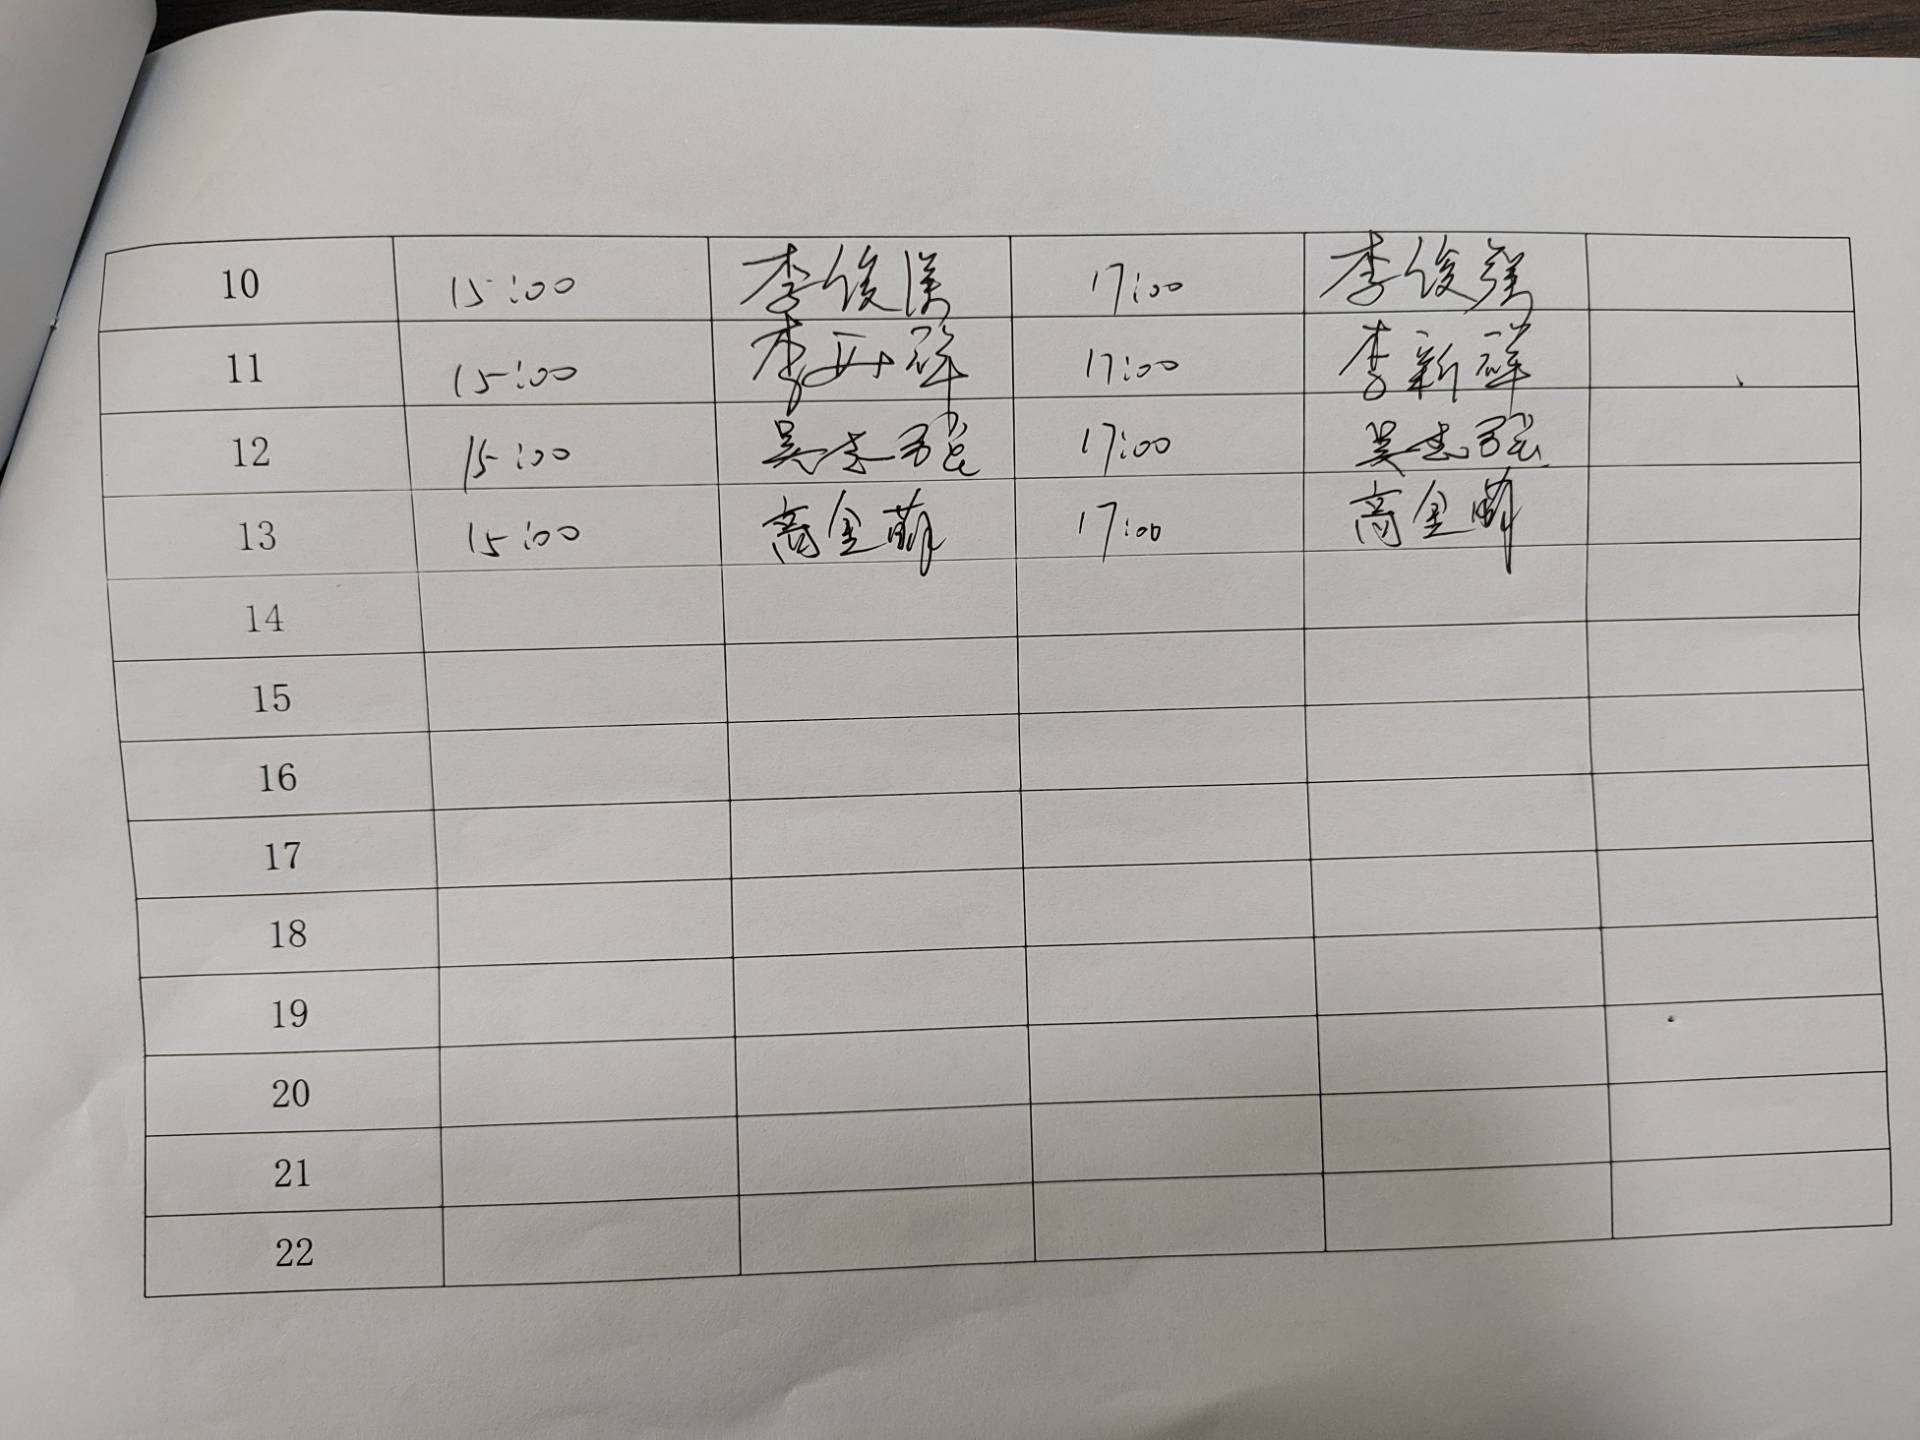 10 15:00 李俊 17:00 李俊强
11 15:00 李 祥 17:00 李新祥
12 15:00 吴志强 17:00 吴志强
13 15:00 高金萌 17:00 高金萌
14
15
16
17
18
19
20
21
22